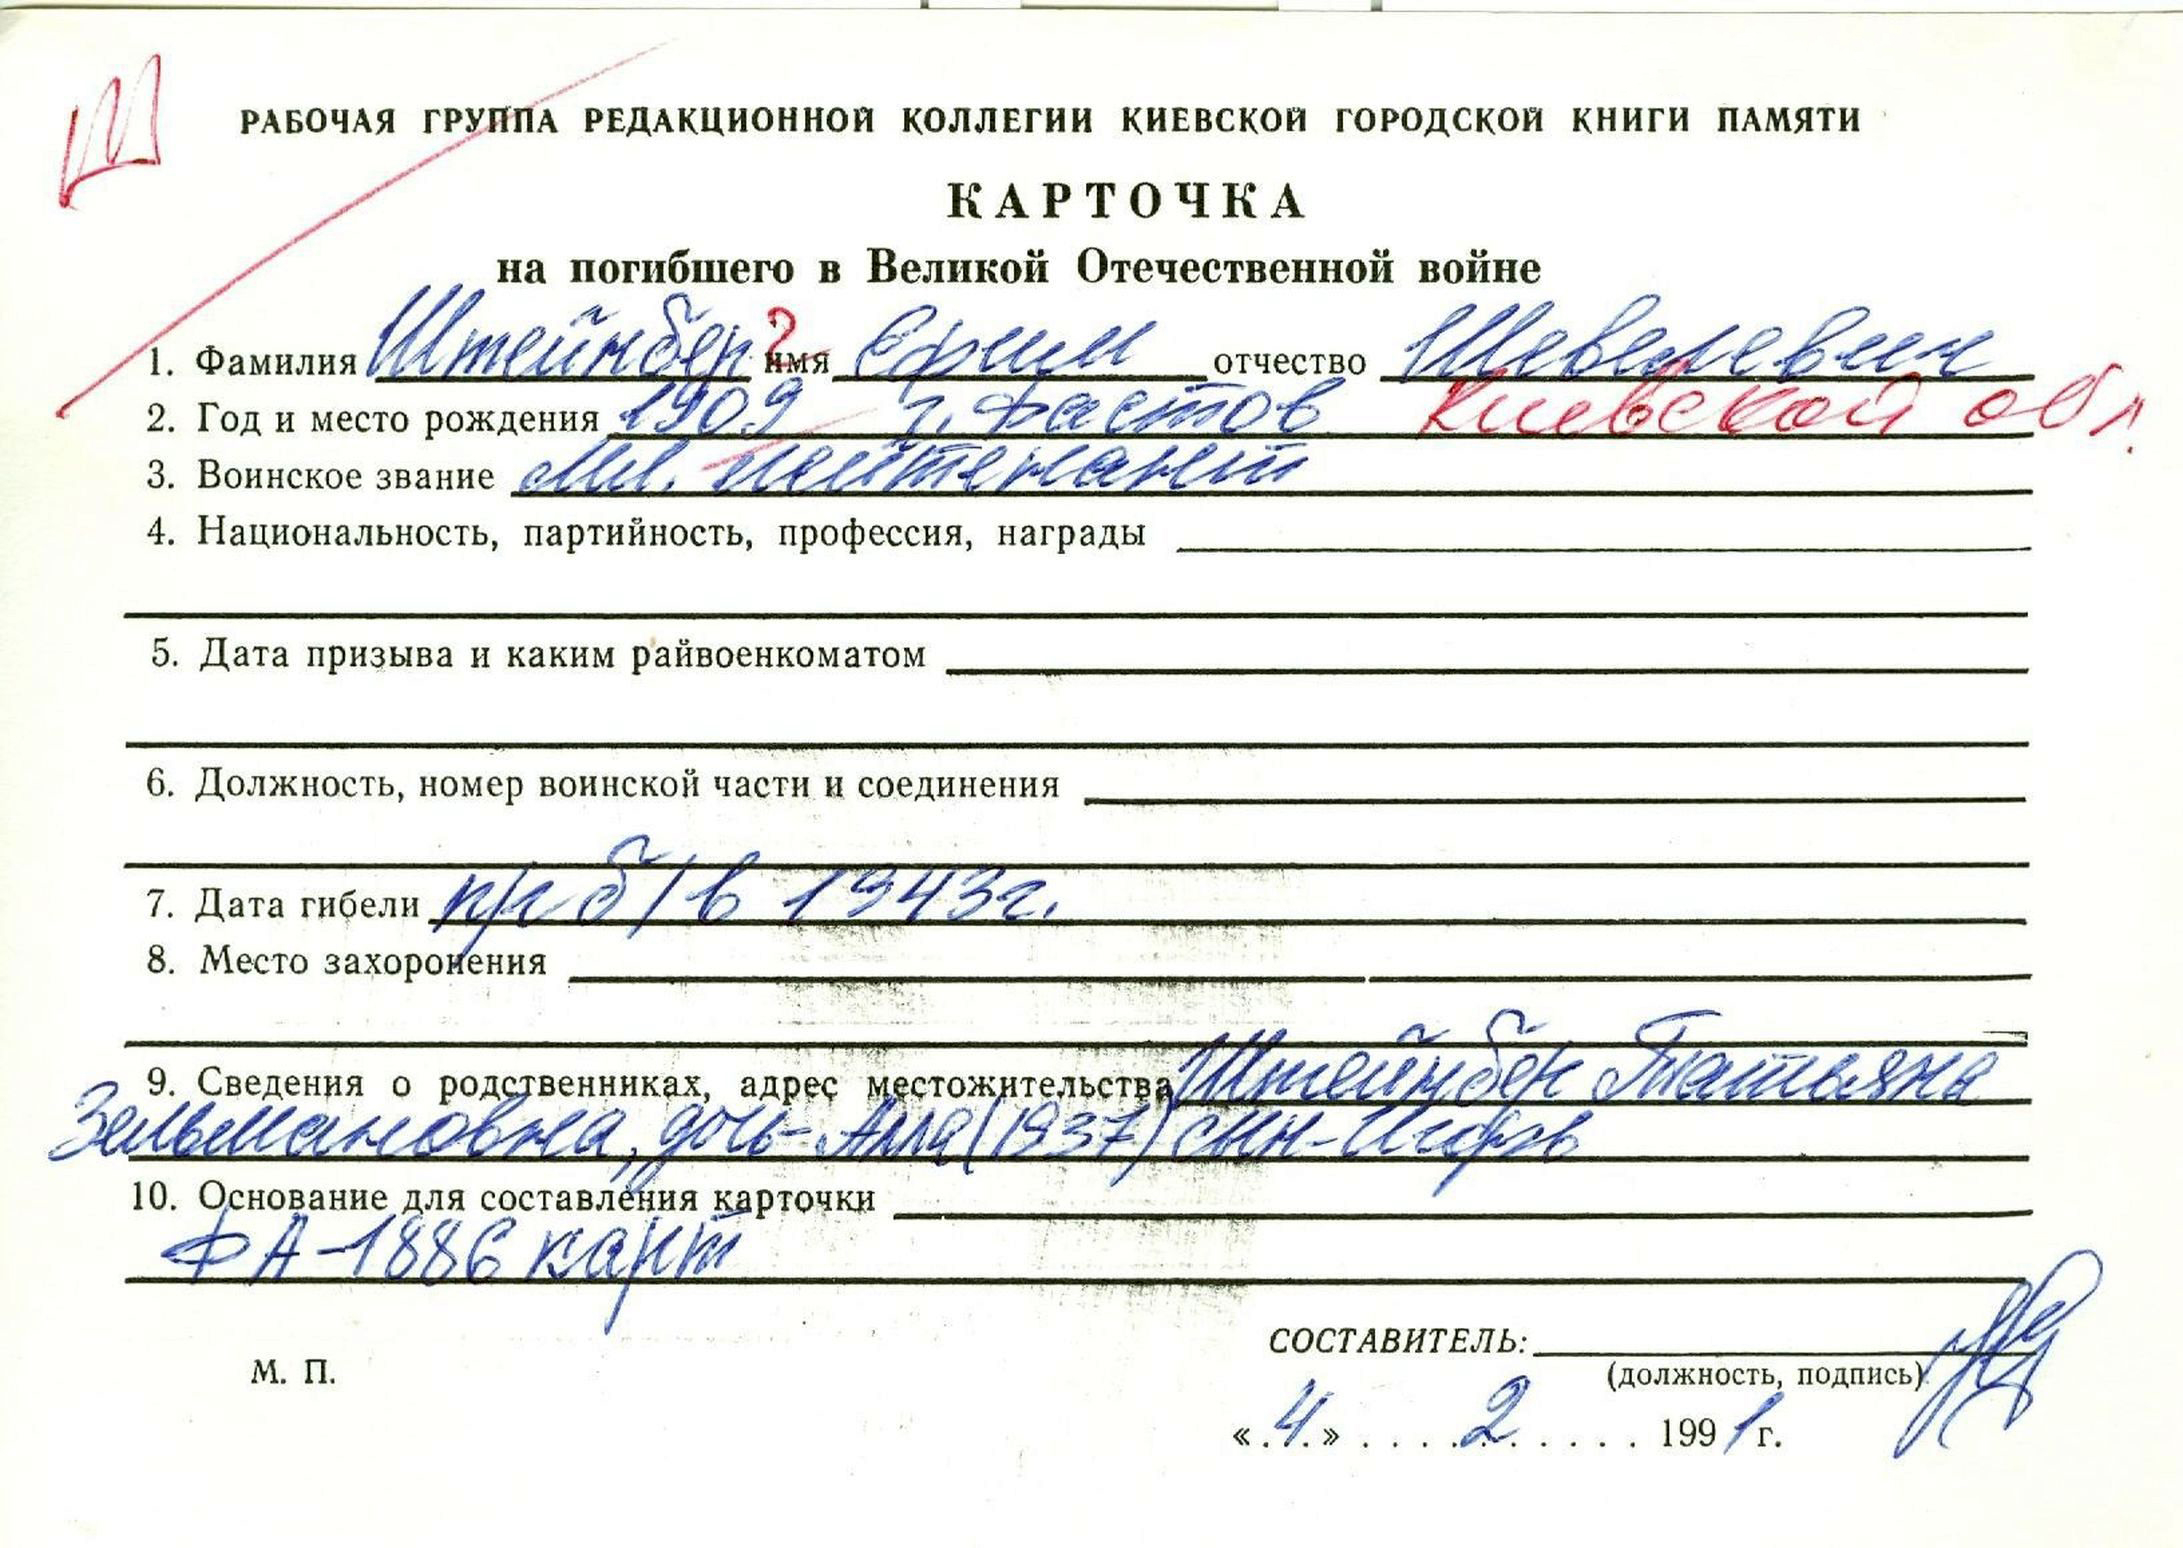 Ш
РАБОЧАЯ ГРУППА РЕДАКЦИОННОЙ КОЛЛЕГИИ КИЕВСКОЙ ГОРОДСКОЙ КНИГИ ПАМЯТИ
КАРТОЧКА
на погибшего в Великой Отечественной войне
1. Фамилия Штейнберг имя Ефим отчество Шевелевич
2. Год и место рождения 1909 г. Фастов Киевской обл.
3. Воинское звание Мл. лейтенант
4. Национальность, партийность, профессия, награды
5. Дата призыва и каким райвоенкоматом
6. Должность, номер воинской части и соединения
7. Дата гибели п/г б/в 1943г.
8. Место захоронения
9. Сведения о родственниках, адрес местожительства Штейнбер Татьяна
Зельмановна, дочь-Алла(1937) сын-Игорь
10. Основание для составления карточки
ФА-1886 карт
СОСТАВИТЕЛЬ:
М. П.
(должность, подпись)
«.4.» . . . . 2 . . . . . 1991 г.